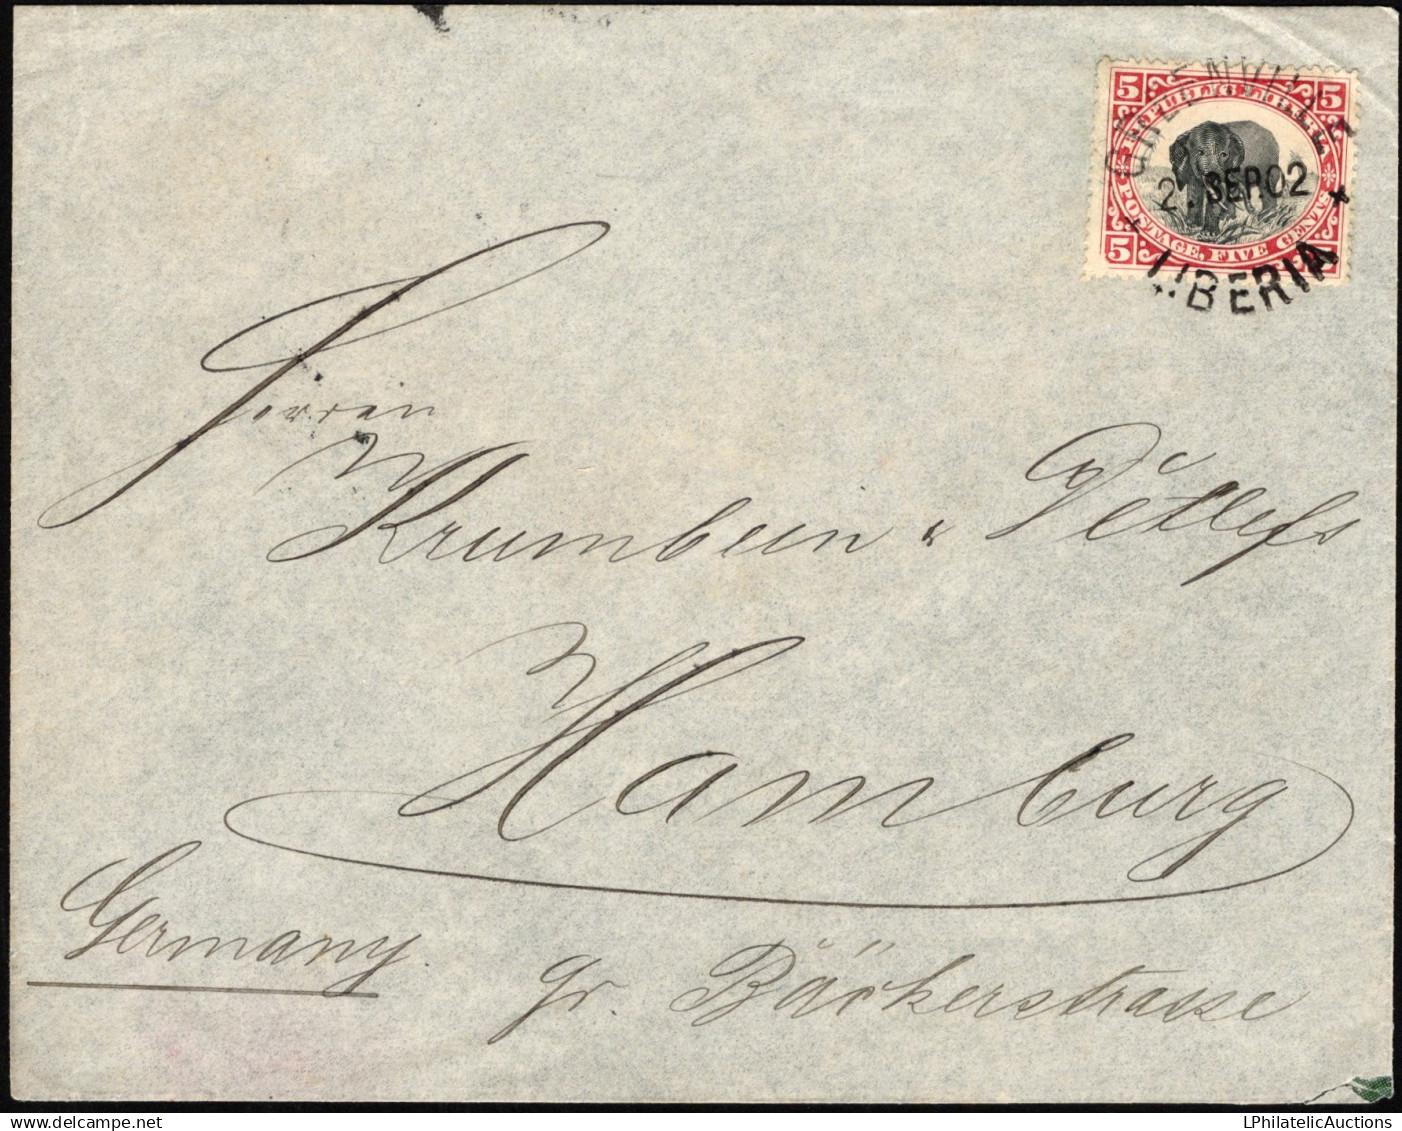 5 REPUBLIC LIBERIA 5
5 POSTAGE, FIVE CENTS 5
GREENVILLE
2. SEP. 02
LIBERIA
Herren
Krumbein & Detlefs
Hamburg
Germany.
gr. Bäckerstrasse
LPhilatelicAuctions